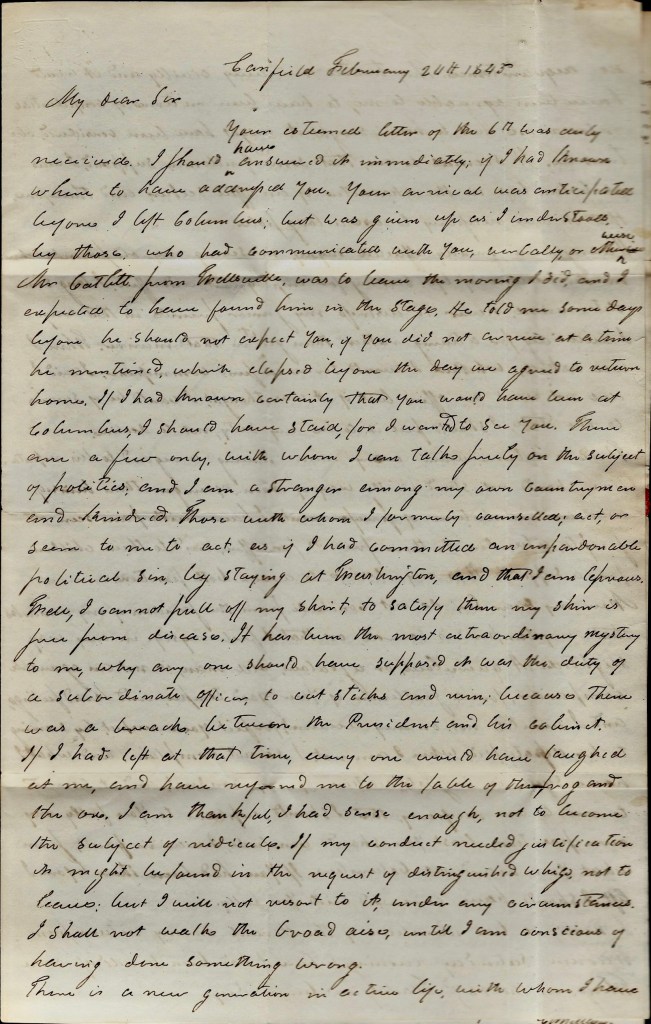 Canfield February 24th 1845
My Dear Sir
Your esteemed letter of the 6th was duly
received. I should have answered it immediately; if I had known
where to have addressed You. Your arrival was anticipated
before I left Columbus; but was given up as I understood,
by those, who had communicated with You, verbally or otherwise
Mr Catlett from Wellsville, was to leave the morning I did, and I
expected to have found him in the Stage. He told me some days
before he should not expect You, if you did not arrive at a time
he mentioned, which elapsed before the day we agreed to return
home. If I had known certainly that You would have been at
Columbus, I should have staid, for I wanted to see You. There
are a few only, with whom I can talk freely on the subject
of politics; and I am a stranger among my own Countrymen
and kindred. Those with whom I formerly counselled; act, or
seem to me to act, as if I had committed an unpardonable
political sin, by staying at Washington, and that I am leprous.
Well, I cannot pull off my shirt, to satisfy them my skin is
free from disease. It has been the most extraordinary mystery
to me, why any one should have supposed it was the duty of
a subordinate officer, to cut sticks and run; because there
was a breach between the President and his cabinet.
If I had left at that time, every one would have laughed
at me, and have referred me to the fable of the frog and
the ox. I am thankful, I had sense enough, not to become
the subject of ridicule. If my conduct needed justification
it might be found in the request of distinguished whigs, not to
leave; but I will not resort to it, under any circumstances.
I shall not walk the broad aisle, until I am conscious of
having done something wrong.
There is a new generation in active life, with whom I have